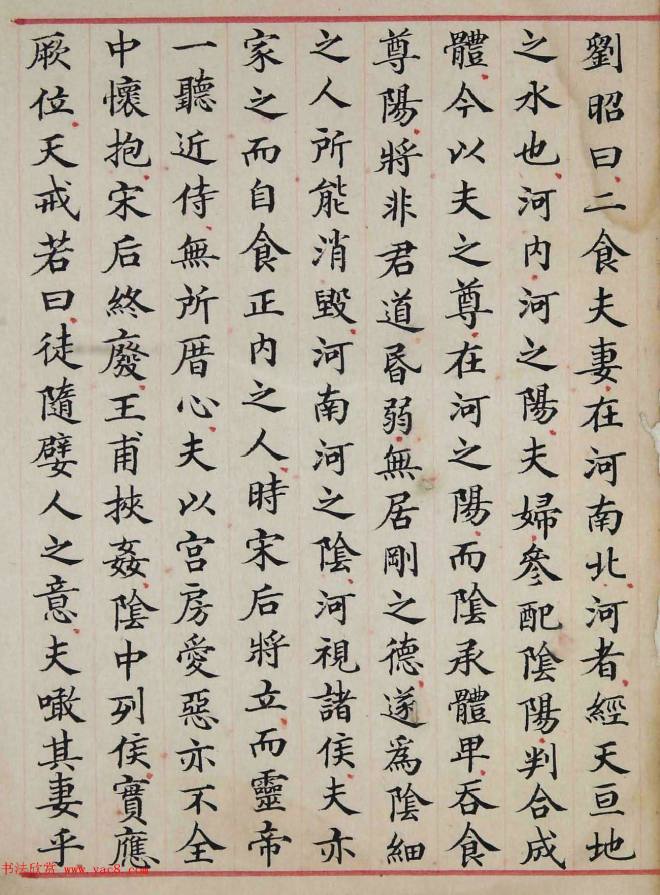 劉昭曰二食夫妻在河南北河者經天亘地
之水也河內河之陽夫婦參配陰陽判合成
體今以夫之尊在河之陽而陰承體卑吞食
尊陽將非君道昬弱無居剛之德遂為陰細
之人所能消毀河南河之陰河視諸侯夫亦
家之而自食正內之人時宋后將立而靈帝
一聽近侍無所厝心夫以宮房愛惡亦不全
中懷抱宋后終廢王甫挾姦陰中列侯實應
厥位天戒若曰徒隨嬖人之意夫噉其妻乎
书法欣赏 www.yac8.com